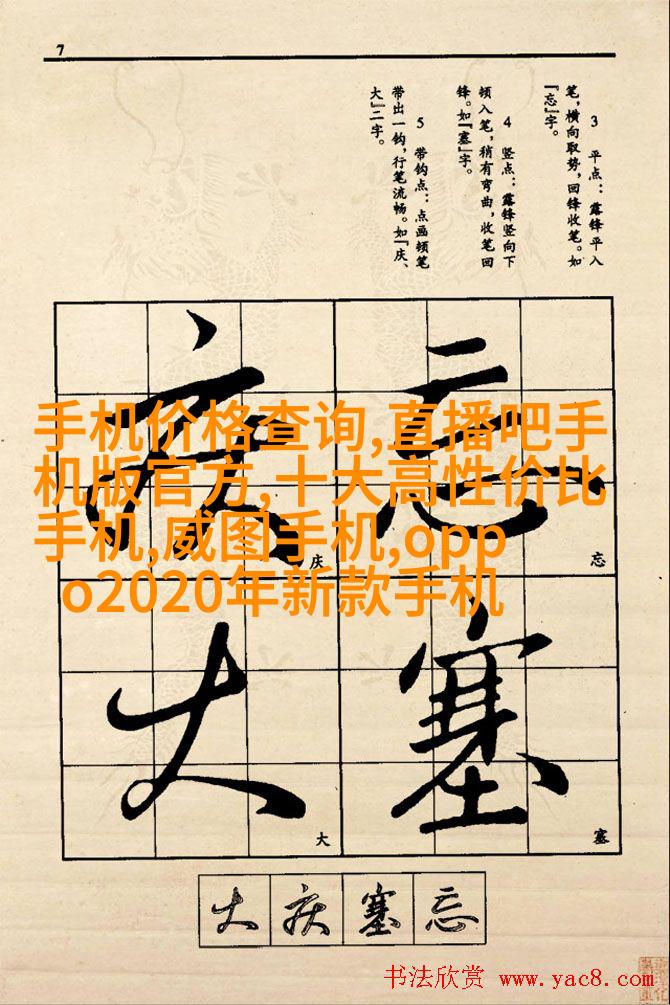 7
3 平点：露锋平入
笔，横向取势，回锋收笔。如
『忘』字。
4 竖点：露锋竖向下
顿入笔，稍有弯曲，收笔回
锋。如『塞』字。
5 带钩点：点画顿笔
带出一钩，行笔流畅。如『庆、
大』二字。
手机价格查询,直播吧手
机版官方,十大高性价比
手机,威图手机,opp
o2020年新款手机
忘
忘
塞
塞
庆
庆
大
大
大 庆 塞 忘
书法欣赏 www.yac8.com